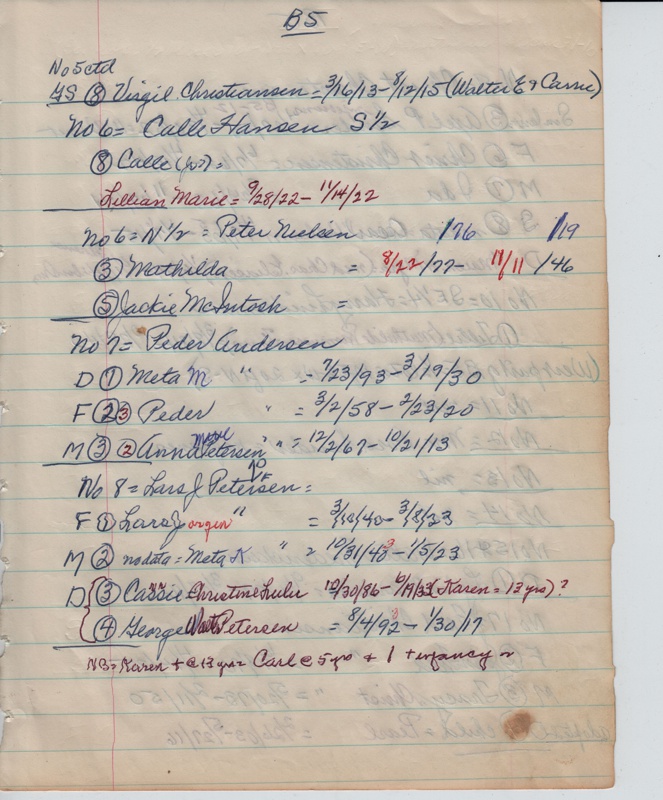 B5
No 5 ctd
GS ⑧ Virgil Christiansen = 3/16/13 – 8/12/15 (Walter E & Carrie)
No 6 = Calle Hansen S 1/2
⑧ Calle
Lillian Marie = 9/28/22 – 11/14/22
No 6 = N 1/2 = Peter Nielsen /76 /19
③ Mathilda = 8/22/77 – 11/11/46
⑤ Jackie McIntosh =
No 7 = Peder Andersen
D ① Meta M " = 7/23/93 – 3/19/30
F ② 3 Peder " = 3/2/58 – 2/23/20
M ③ ② Anna Petersen " = 12/2/67 – 10/21/13
No 8 = Lars J Petersen =
F ① Lars Jorgen " = – 3/8/23
M ② no data = Meta K " = 10/31/48 – 1/5/23
D ③ Cassie Christine Lulu 10/30/86 – (Karen = 13 yrs) ?
④ George Petersen = 8/4/92 – 1/30/17
NB = Karen + @ 13 yrs = Carl @ 5 yrs + 1 + infancy =